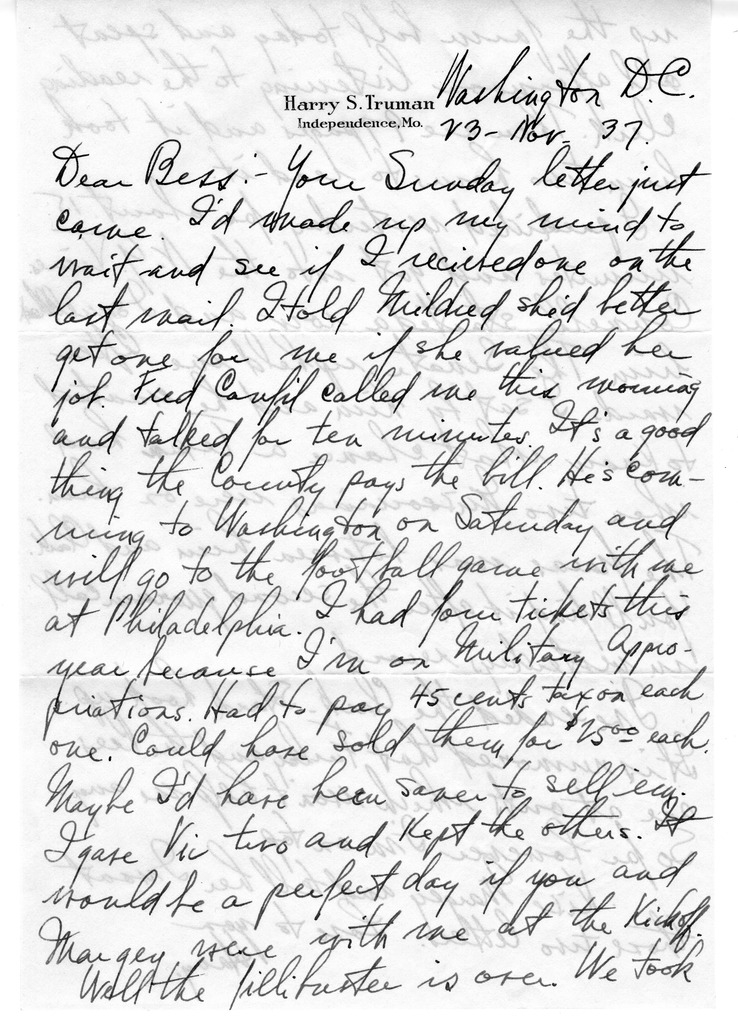 Washington D.C.
Harry S. Truman
Independence, Mo.
23 - Nov. 37.
Dear Bess:- Your Sunday letter just
came. I'd made up my mind to
wait and see if I recieved one on the
last mail. I told Mildred she'd better
get one for me if she valued her
job. Fred Canfil called me this morning
and talked for ten minutes. It's a good
thing the County pays the bill. He's com-
ming to Washington on Saturday and
will go to the football game with me
at Philadelphia. I had four tickets this
year because I'm on Military Appro-
priations. Had to pay 45 cents tax on each
one. Could have sold them for $25⁰⁰ each.
Maybe I'd have been saner to sell 'em.
I gave Vic two and kept the others. It
would be a perfect day if you and
Margey were with me at the Kickoff.
Well the fillibuster is over. We took